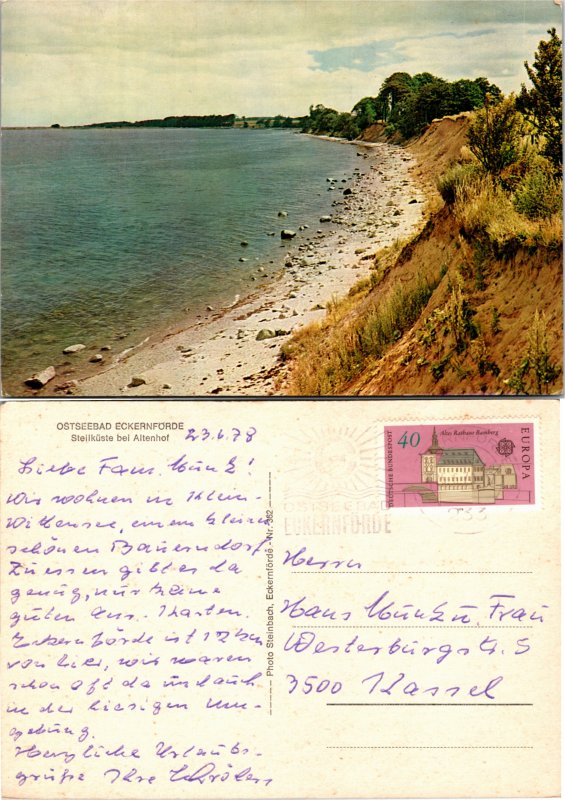 OSTSEEBAD ECKERNFÖRDE
Steilküste bei Altenhof
23.6.78
Liebe Fam. Munk!
Wir wohnen in Klein-
Wittensee, einem kleinen
schönen Bauerndorf.
Zu essen gibt es da
genug, nur keine
guten Ans.-Karten.
Eckernförde ist 12 km
von hier, wir waren
schon oft da und auch
in der hiesigen Um-
gebung.
Herzliche Urlaubs-
grüße Ihre
Photo Steinbach, Eckernförde - Nr. 362
40
Altes Rathaus Bamberg
DEUTSCHE BUNDESPOST
EUROPA
CEPT
OSTSEEBAD
ECKERNFÖRDE
Herrn
Hans Munk u. Frau
Westerburgstr. 5
3500 Kassel